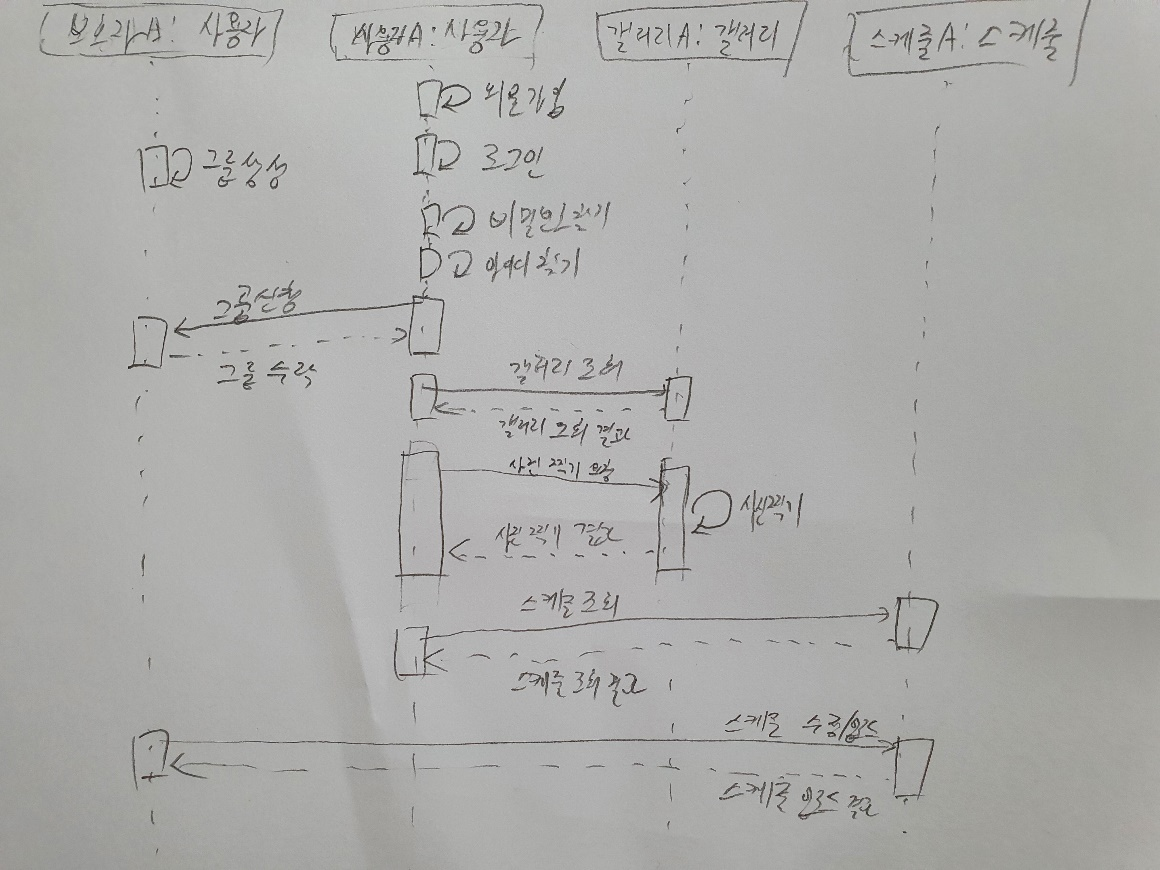 보호자A: 사용자
사용자A: 사용자
갤러리A: 갤러리
스케쥴A: 스케쥴
회원가입
로그인
그룹생성
비밀번호찾기
아이디찾기
그룹신청
그룹 수락
갤러리 조회
갤러리 조회 결과
사진 찍기 요청
사진찍기
사진찍기 결과
스케쥴 조회
스케쥴 조회 결과
스케쥴 수정/업로드
스케쥴 업로드 결과